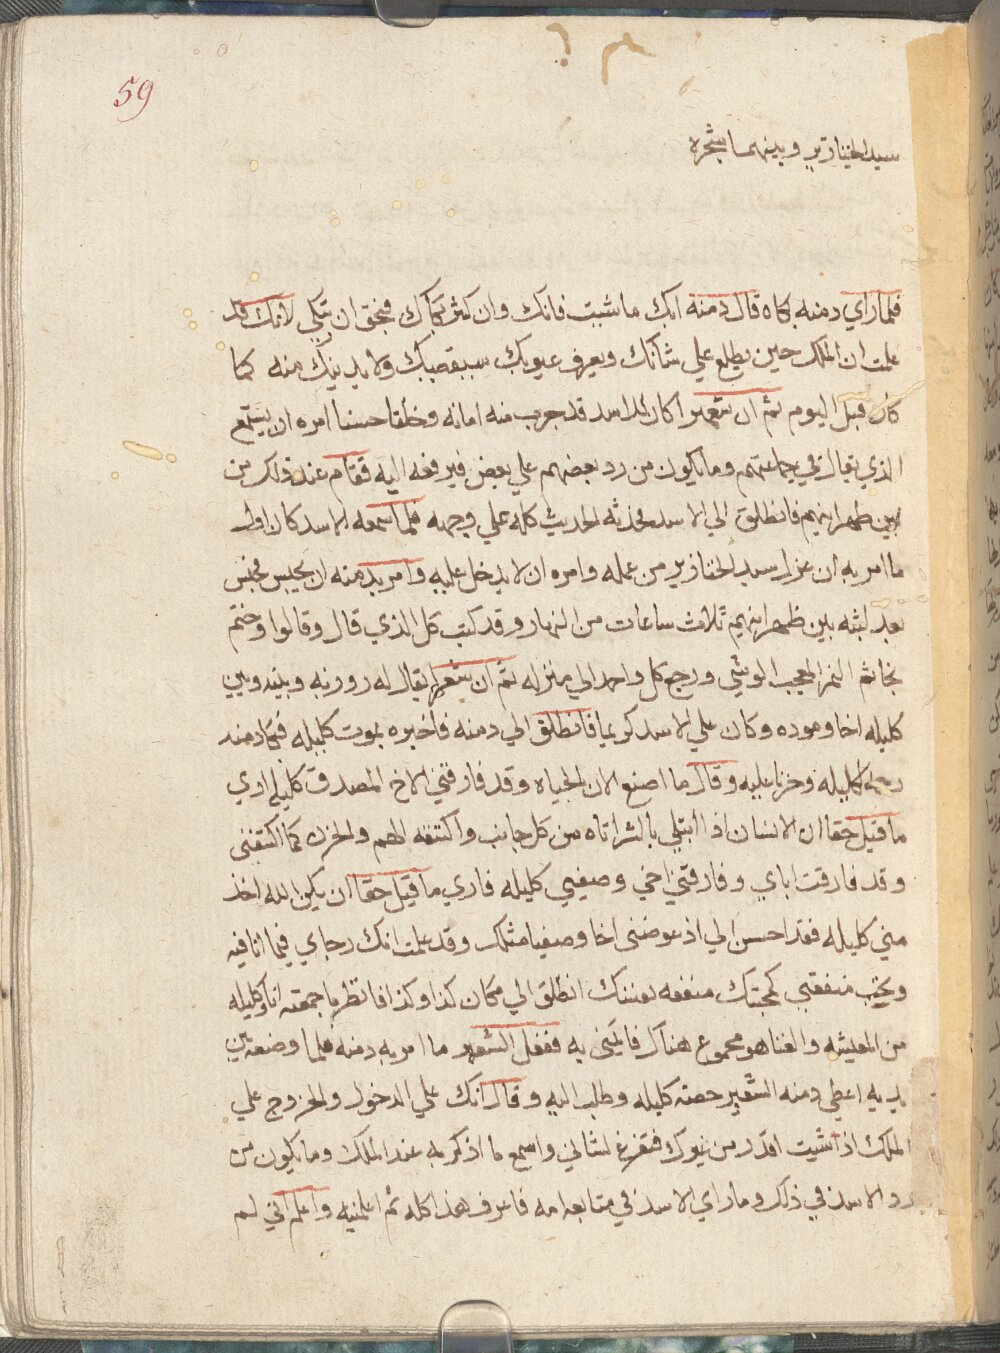 59
سيد الخنازير وبينهما شجره
فلما راي دمنه بكاه قال دمنه ابك ما شيت فانك وان كثر بكاك فبحق ان تبكي لانك قد
علمت ان الملك حين يطلع علي شانك ويعرف عيوبك ولا يدنيك منه كما
كان قبل اليوم ثم ان شعهرا كان الاسد قد جرب منه امانه وخلقا حسنا امره ان يستمع
الذي يقال في جماعتهم وما يكون من رد بعضهم علي بعض فيرفعه اليه فقام عند ذلك من
بين ظهرانيهم فانطلق الي الاسد فحدثه الحديث كله علي وجهه فلما سمعه الاسد كان اول
ما امر به ان عزل سيد الخنازير من عمله وامره ان لا يدخل عليه وامر بدمنه ان يحبس فحبس
بعد لبثه بين ظهرانيهم ثلاث ساعات من النهار وقد كتب كل الذي قال وقالوا وختم
بخاتم النمر المعجب الوشي ورجع كل واحد الي منزله ثم ان شعهرا يقال له روزبه وبينه وبين
كليله اخا وموده وكان علي الاسد كريما فانطلق الي دمنه فاخبره بموت كليله فبكا دمنه
رحمة لكليله وحزنا عليه وقال ما اصنع الان بالحياه وقد فارقني الاخ المصدق كليله اري
ما قيل حقا ان الانسان اذا ابتلي بالشر اتاه من كل جانب واكتنفه الهم والحزن كما اكتنفني
وقد فارقت اباي وفارقني اخي وصفيي كليله فاري ما قيل حقا ان يكن الله اخذ
مني كليله فقد احسن الي اذ عوضني اخا وصفيا مثلك وقد علمت انك رجاي فيما انا فيه
منفعتي كمحبتك منفعه نفسك انطلق الي مكان كذا وكذا فانظر ما جمعته انا وكليله
من المعيشه والغنا هو مجموع هناك فايتني به ففعل الشعهر ما امر به دمنه فلما وضعه بين
يديه اعطي دمنه الشعهر حصة كليله وطلب اليه وقال انك علي الدخول والخروج علي
الملك اذا شيت اقدر من غيرك فتفرغ لشاني واسمع ما اذكر به عند الملك وما يكون من
رد الاسد في ذلك وما راي الاسد في متابعة امه فاعرف هذا كله ثم اعلمنيه واعلم اني لم